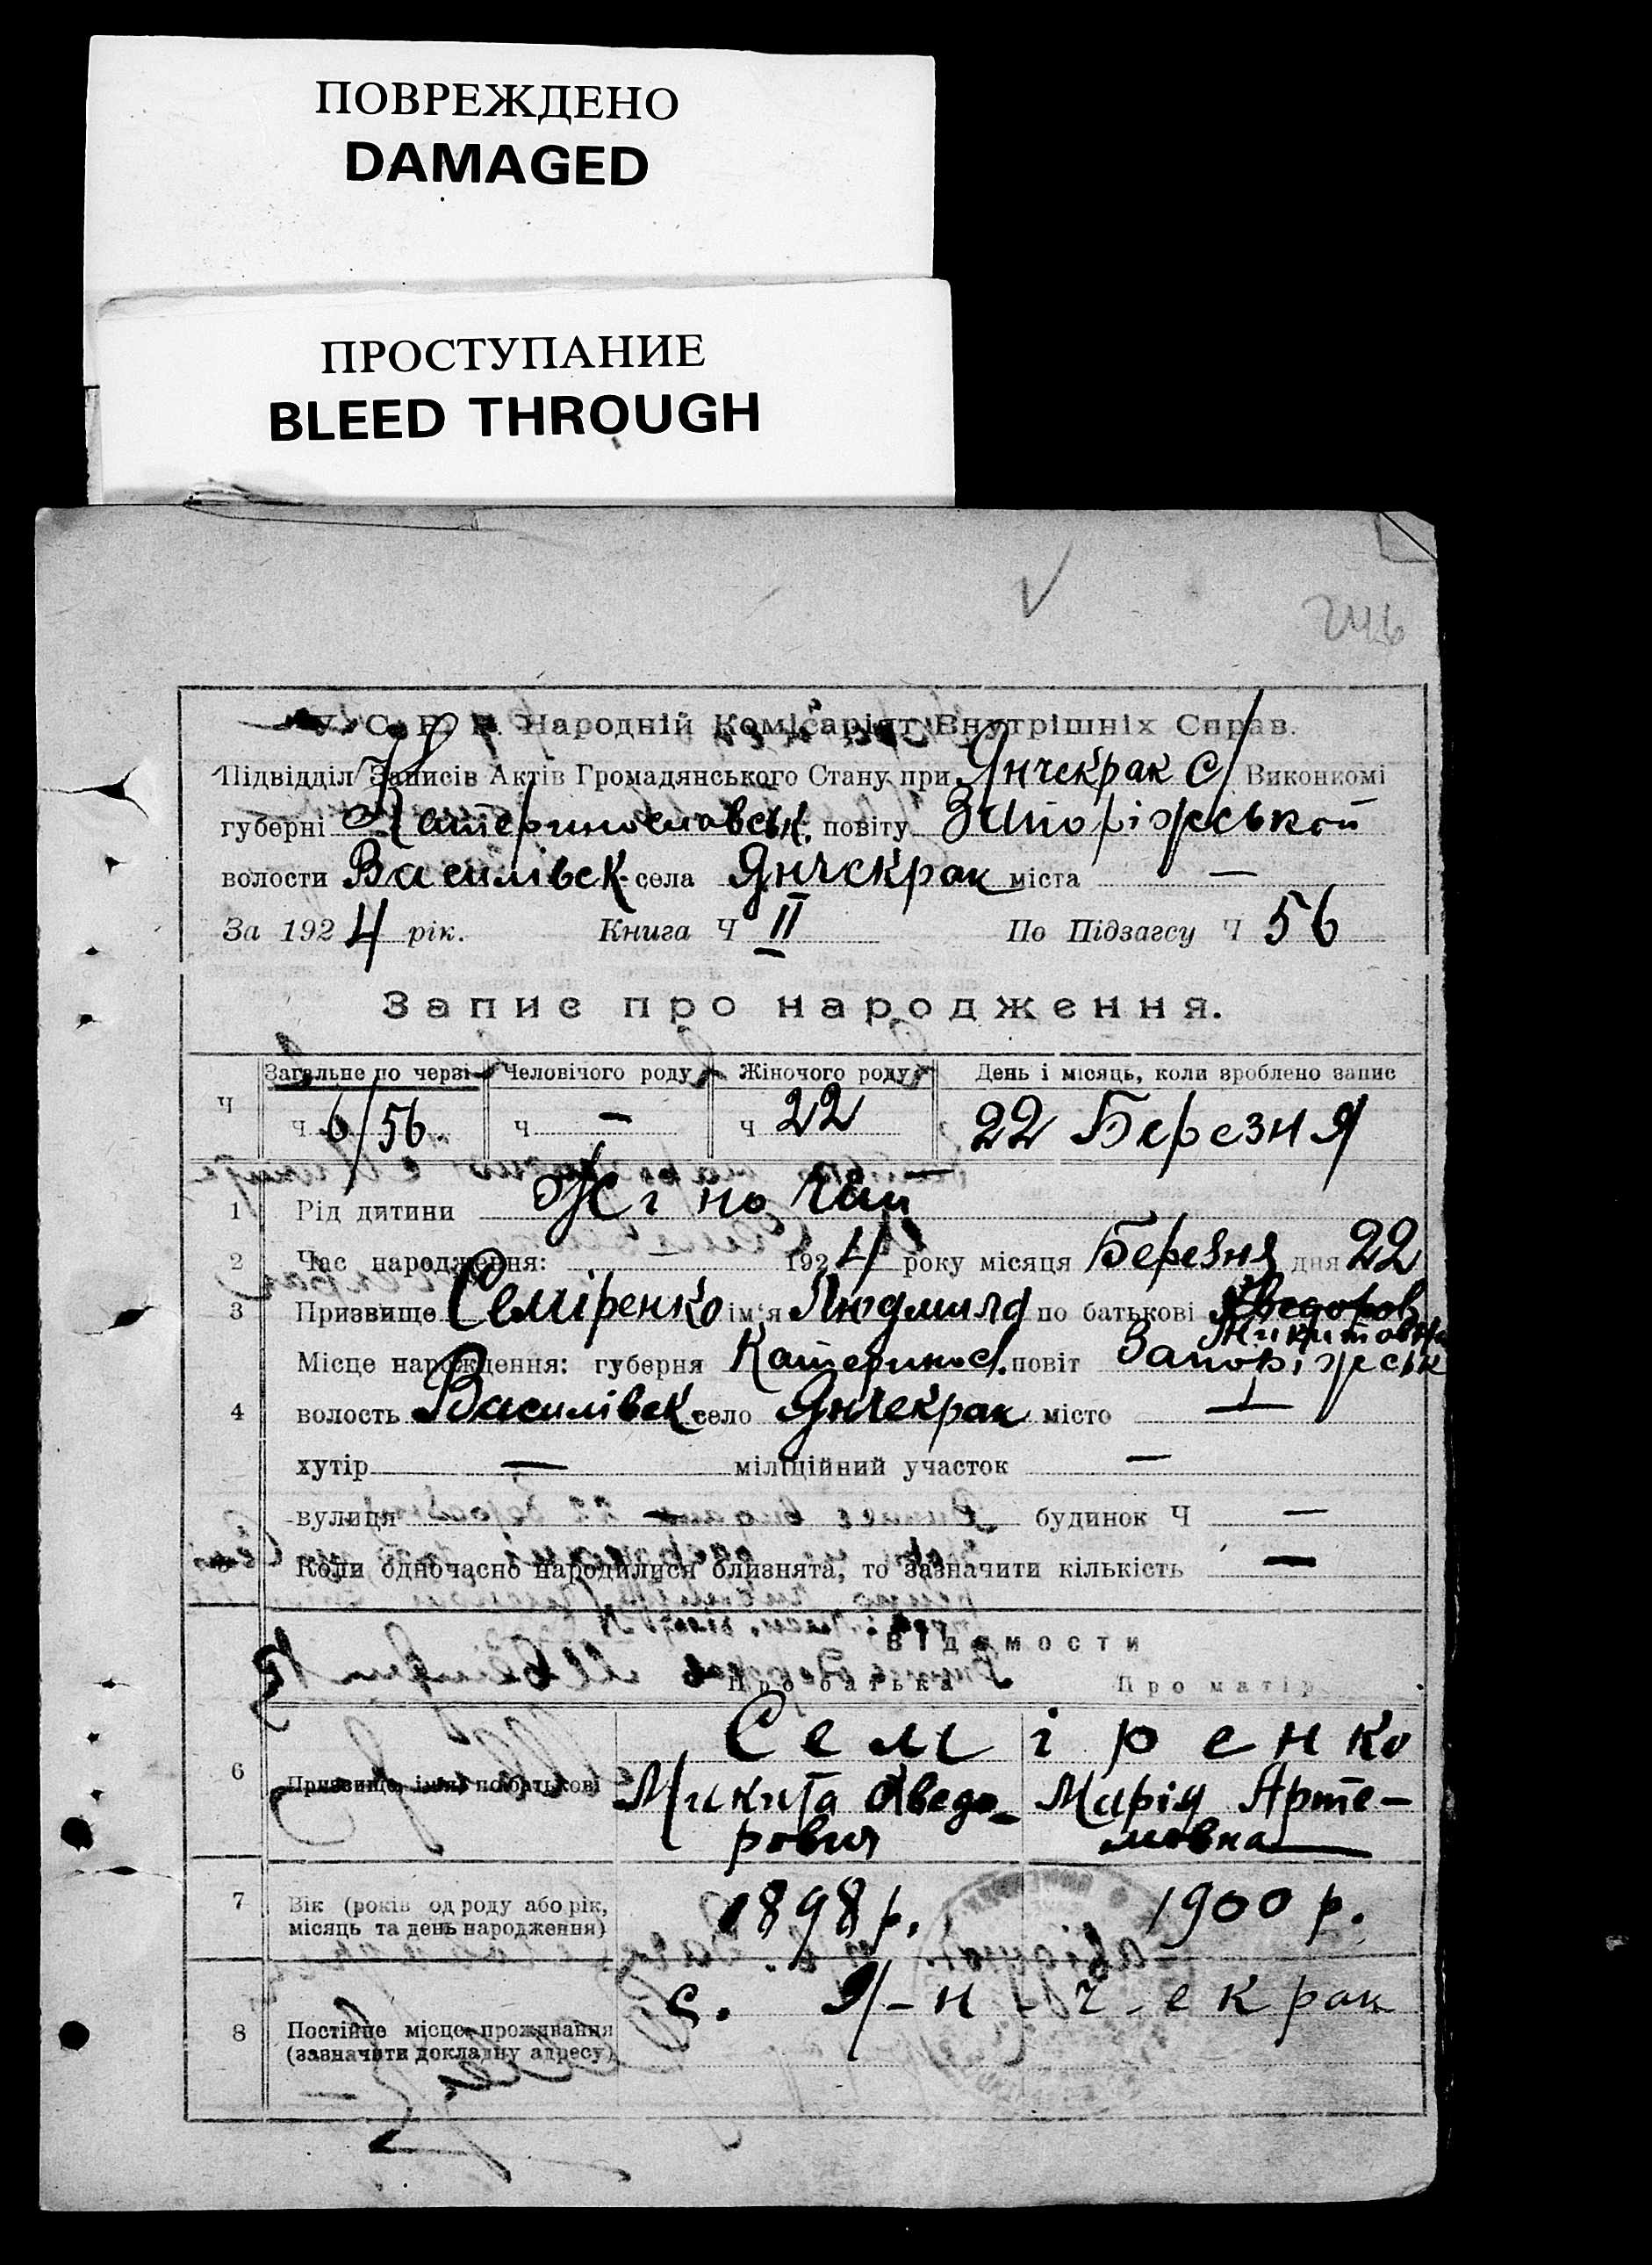 ПОВРЕЖДЕНО
DAMAGED
ПРОСТУПАНИЕ
BLEED THROUGH
246
У. С. Р. Р. Народній Комісаріят Внутрішніх Справ.
Підвідділ Записів Актів Громадянського Стану при Янчекрак С/ Виконкомі
губерні Катеринославськ. повіту Запоріжської
волости Василівськ. села Янчекрак міста —
За 1924 рік. Книга Ч II По Підзагсу Ч 56
Запис про народження.
Ч Загальне по черзі Человічого роду Жіночого роду День і місяць, коли зроблено запис
Ч 6/56 Ч — Ч 22 22 Березня
1 Рід дитини Жіночай
2 Час народження: 1924 року місяця Березня дня 22
3 Призвище Семіренко ім'я Людмила по батькові Хведоров
Микитовна
Місце народження: губерня Катеринос. повіт Запоріжськ
4 волость Василівск. село Янчекрак місто —
хутір — міліційний участок —
вулиця — будинок Ч —
Коли одночасно народилися близнята, то зазначити кількість —
Відомости
Про батька Про матір
Семіренко
6 Призвище, ім'я, по батькові Микита Хведо- Марія Арте-
рович мовна
7 Вік (років од роду або рік, 1898 р. 1900 р.
місяць та день народження)
с. Я-н-ч-екрак
8 Постійне місце проживання
(зазначити докладну адресу)